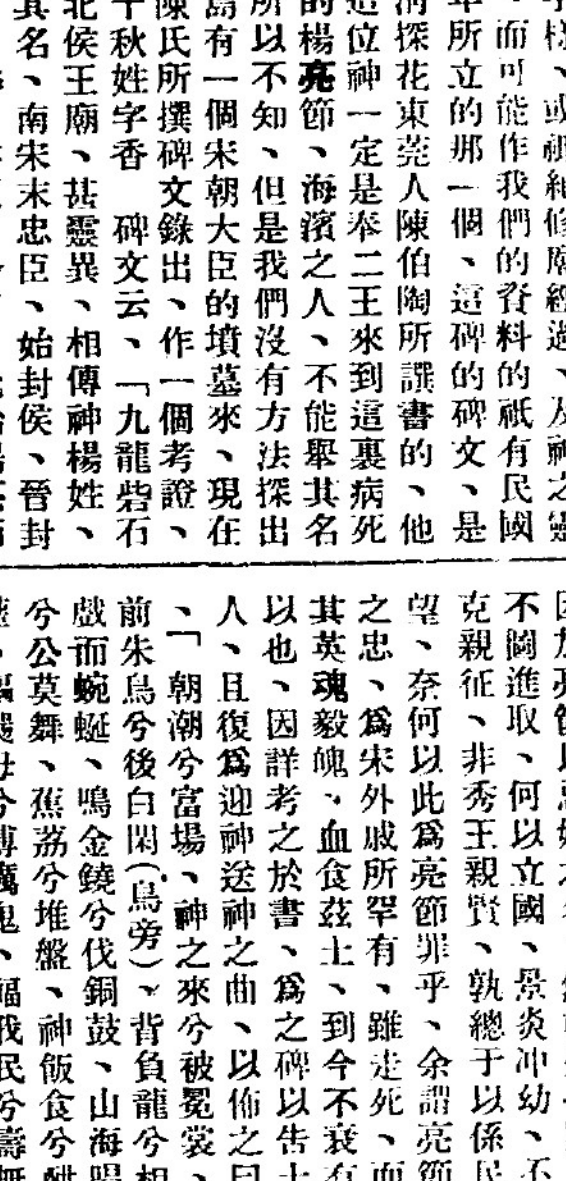 樣、或祇紀修廟經過、及神之靈
、而可能作我們的資料的祇有民國
年所立的那一個、這碑的碑文、是
清探花東莞人陳伯陶所譔書的、他
這位神一定是奉二王來到這裏病死
的楊亮節、海濱之人、不能舉其名
所以不知、但是我們沒有方法探出
島有一個宋朝大臣的墳墓來、現在
陳氏所撰碑文錄出、作一個考證、
千秋姓字香 碑文云、「九龍砦石
北侯王廟、甚靈異、相傳神楊姓、
其名、南宋末忠臣、始封侯、晉封
不圖進取、何以立國、景炎冲幼、不
克親征、非秀王親賢、孰總于以係民
望、奈何以此爲亮節罪乎、余謂亮節
之忠、爲宋外戚所罕有、雖走死、而
其英魂毅魄、血食茲土、到今不衰有
以也、因詳考之於書、爲之碑以告土
人、且復爲迎神送神之曲、以侑之曰
、「朝潮兮富場、神之來兮被冕裳、
前朱鳥兮後白閑(鳥旁)、背負龍兮相
戲而蜿蜒、鳴金鐃兮伐銅鼓、山海
兮公莫舞、蕉荔兮堆盤、神飯食兮
兮
福我民兮壽